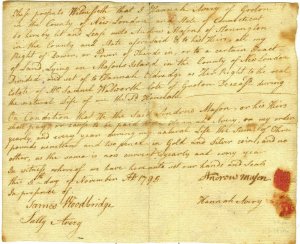 These presents Witnesseth that I Hannah Avery of Groton
in the County of New London and State of Connecticut
do hereby let and Leas unto Andrew Mason of Stonington
in the County and State aforesaid to his Heirs all my
Right of Dower or Thirds in or to a certain Tract
of Land during in Masons Island in the County of New London
Divided, and set of to Hannah as Thirds Right to the real
Estate of Mr. Samuel late of Groton Deceased during
the natural life of me the Sd Hannah
On Condition that the said Andrew Mason, or his Heirs
shall pay Avery, or my order
yearly and every year during my natural life the Sum of Three
pounds nineteen and two pence, in Gold and Silver coin, and no
other, as the same is now current yearly and every year
In witness whereof we have unto set our hands and Seals
this 8th day of November AD 1795
In presence of
Andrew Mason
James Woodbridge
Hannah Avery
Sally Avery